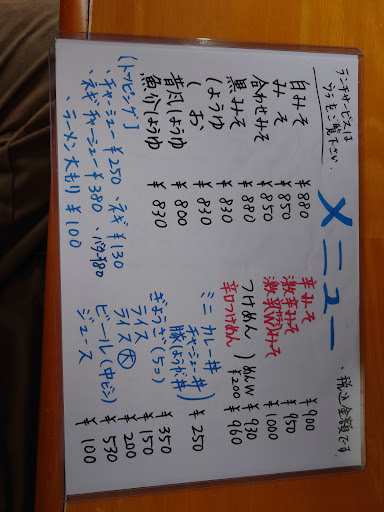 ランチサービスは
うらをご覧下さい
メニュー
・税込金額です。
白みそ ¥880
みそ ¥850
合わせみそ ¥850
黒みそ ¥880
しょうゆ ¥830
しお ¥830
昔風しょうゆ ¥800
魚介しょうゆ ¥830
辛みそ ¥900
激辛みそ ¥950
激辛Wみそ ¥1000
つけめん ¥930
辛口つけめん ¥960
めんW ¥200
ミニ カレー丼
チャーシュー丼
豚しょうが丼 ¥250
ぎょうざ(5コ) ¥350
ライス ¥150
ライス大 ¥200
ビール(中ビン) ¥530
ジュース ¥100
[トッピング]
・チャーシュー ¥250、ネギ ¥130
・ネギチャーシュー ¥380、¥80
・ラーメン大モリ ¥100